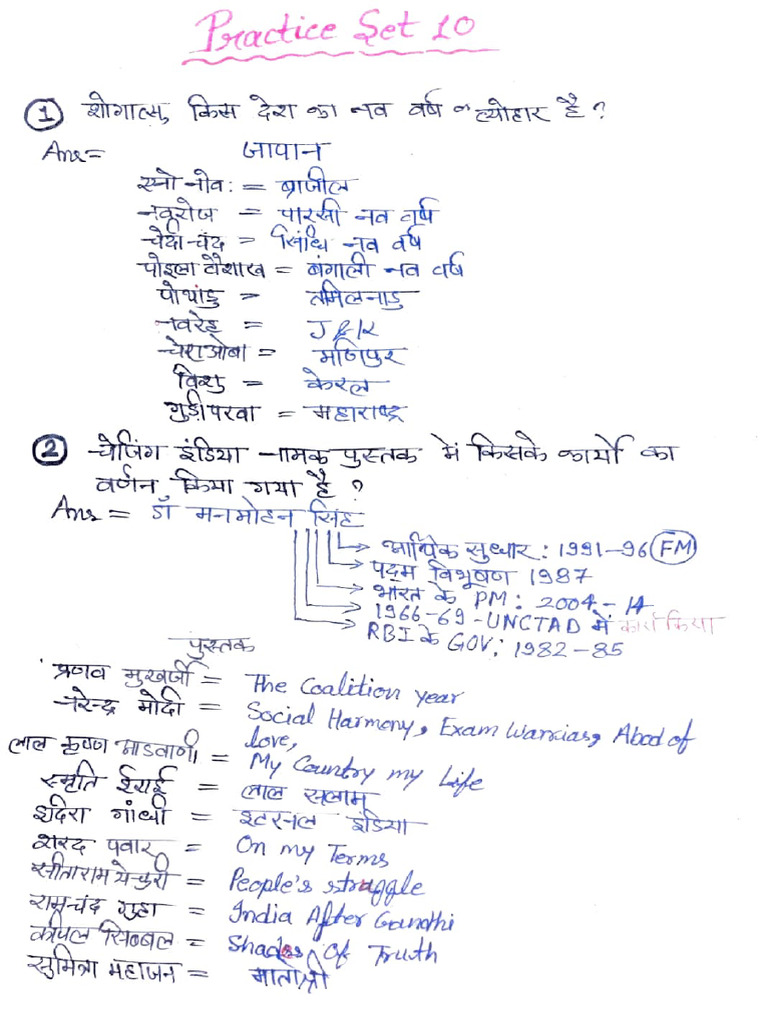 Practice Set 10
① शोगात्सु किस देश का नव वर्ष का त्योहार है ?
Ans = जापान
= ब्राजील
नवरोज = पारसी नव वर्ष
चेटी चंद = सिंधि नव वर्ष
पोइला वैशाख = बंगाली नव वर्ष
पोथांडु = तमिलनाडु
नवरेह = J & K
चेराओबा = मणिपुर
विशु = केरल
गुड़ीपरवा = महाराष्ट्र
② चेंजिंग इंडिया नामक पुस्तक में किसके कार्यो का
वर्णन किया गया है ?
Ans = डॉ मनमोहन सिंह
आर्थिक सुधार : 1991-96 (FM)
पद्म विभूषण 1987
भारत के PM : 2004-14
1966-69 - UNCTAD में कार्य किया
RBI के GOV; 1982-85
पुस्तक
प्रणव मुखर्जी = The Coalition year
नरेन्द्र मोदी = Social Harmony, Exam Warrias, Abod of
love,
लाल कृष्ण आडवाणी = My Country my Life
स्मृति ईरानी = लाल सलाम
इंदिरा गांधी = इटरनल इंडिया
शरद पवार = On my Terms
सीताराम येचुरी = People's struggle
रामचंद गुहा = India After Gandhi
कपिल सिब्बल = Shades Of Truth
सुमित्रा महाजन = मातोश्री